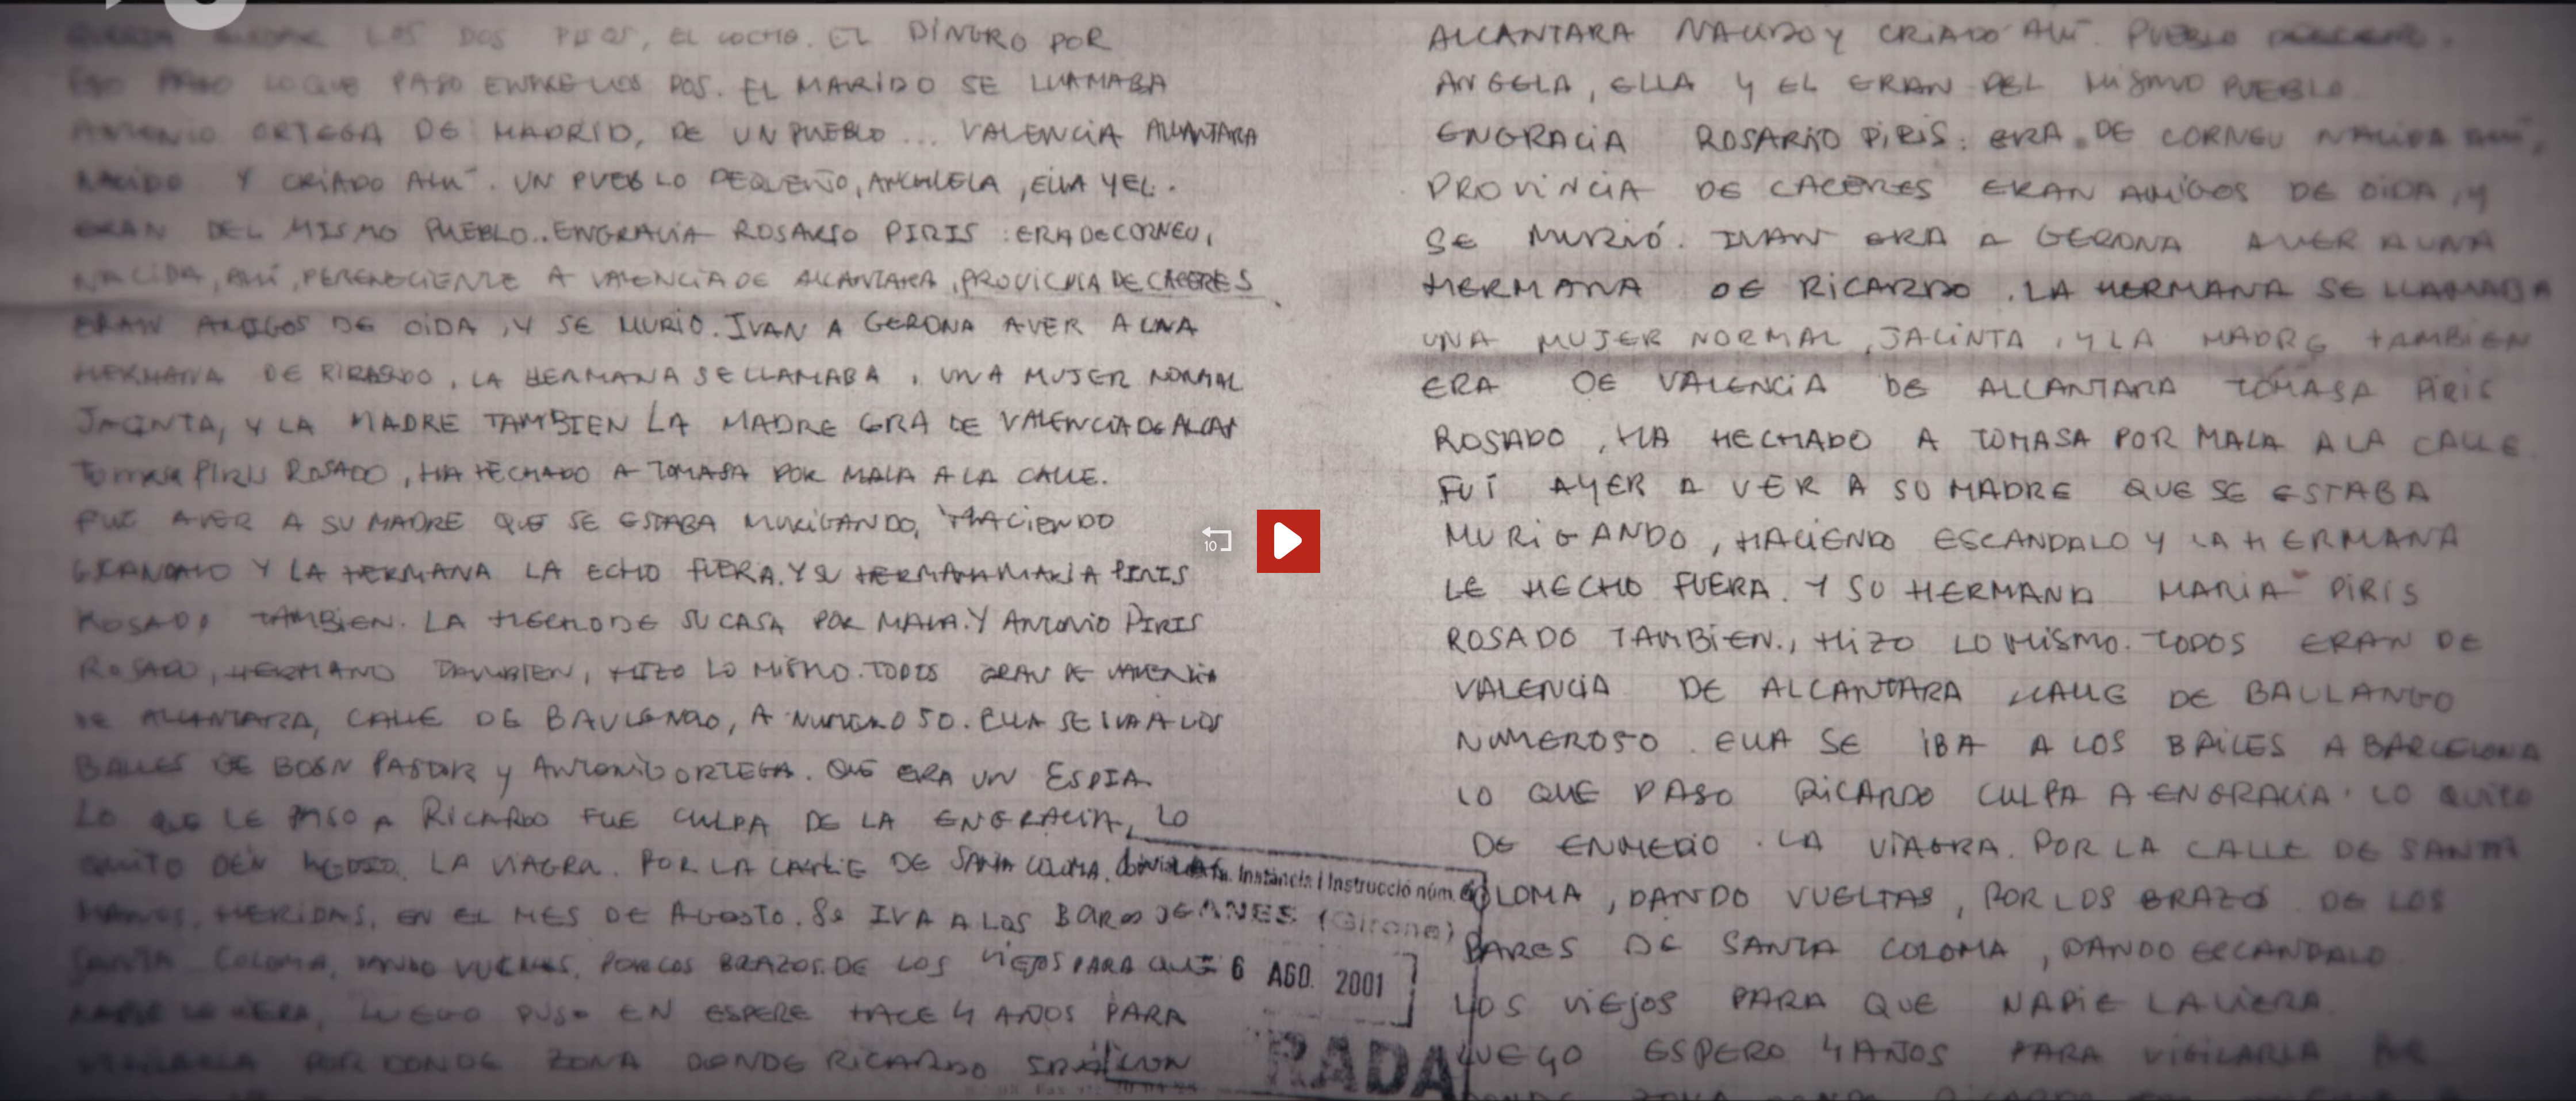 LOS DOS PISOS, EL COCHE. EL DINERO POR
ESO PASO LO QUE PASO ENTRE LOS DOS. EL MARIDO SE LLAMABA
ANTONIO ORTEGA DE MADRID, DE UN PUEBLO ... VALENCIA ALCANTARA
NACIDO Y CRIADO ALLI. UN PUEBLO PEQUEÑO, ANCHLELA, ELLA Y EL.
ERAN DEL MISMO PUEBLO.. ENGRACIA ROSARIO PIRIS : ERA DE CORNEU,
NACIDA, ALLI, PERENECIENTE A VALENCIA DE ALCANTARA, PROVICNIA DE CACERES
ERAN AMIGOS DE OIDA, Y SE MURIO. IVAN A GERONA AVER A UNA
HERMANA DE RICARDO, LA HERMANA SE LLAMABA, UNA MUJER NORMAL
JACINTA, Y LA MADRE TAMBIEN LA MADRE ERA DE VALENCIA DE ALCAN
TOMASA PIRIS ROSADO, HA HECHADO A TOMASA POR MALA A LA CALLE.
FUE AVER A SU MADRE QUE SE ESTABA MURIGANDO, HACIENDO
Y LA HERMANA LA ECHO FUERA. Y SU HERMANA MARIA PIRIS
ROSADO TAMBIEN. LA HECHO DE SU CASA POR MALA. Y ANTONIO PIRIS
ROSADO, HERMANO TAMBIEN, HIZO LO MISMO. TODOS ERAN DE VALENCIA
DE ALCANTARA, CALLE DE BAULENGO, A NUMERO 50. ELLA SE IVA A LOS
BAILES DE BOEN PASTOR Y ANTONIO ORTEGA. QUE ERA UN ESPIA
LO QUE LE PASO A RICARDO FUE CULPA DE LA ENGRACIA, LO
QUITO DEN MEDIO. LA VIAGRA. POR LA CALLE DE SANTA COLOMA.
MANOS, HERIDAS, EN EL MES DE AGOSTO. SE IVA A LOS BARES DE
SANTA COLOMA, DANDO VUELTAS, POR LOS BRAZOS DE LOS VIEJOS PARA QUE
NADIE LA VIERA, LUEGO PUSO EN ESPERE HACE 4 AÑOS PARA
VIGILARLA POR DONDE ZONA DONDE RICARDO
Instància i Instrucció núm.
(Girona)
6 AGO. 2001
RADA
10
ALCANTARA NACIDO Y CRIADO ALLI. PUEBLO
ANGELA, ELLA Y EL ERAN DEL MISMO PUEBLO.
ENGRACIA ROSARIO PIRIS: ERA DE CORNEU NACIDA ALLI,
PROVINCIA DE CACERES ERAN AMIGOS DE OIDA, Y
SE MURIÓ. IVAN ERA A GERONA AVER A UNA
HERMANA DE RICARDO. LA HERMANA SE LLAMABA
UNA MUJER NORMAL, JACINTA, Y LA MADRE TAMBIEN
ERA DE VALENCIA DE ALCANTARA TOMASA PIRIS
ROSADO, HA HECHADO A TOMASA POR MALA A LA CALLE.
FUI AYER A VER A SU MADRE QUE SE ESTABA
MURIGANDO, HACIENDO ESCANDALO Y LA HERMANA
LE HECHO FUERA. Y SU HERMANA MARIA PIRIS
ROSADO TAMBIEN., HIZO LO MISMO. TODOS ERAN DE
VALENCIA DE ALCANTARA CALLE DE BAULANGO
NUMERO 50. ELLA SE IBA A LOS BAILES A BARCELONA
LO QUE PASO RICARDO CULPA A ENGRACIA. LO QUITO
DE ENMEDIO. LA VIAGRA. POR LA CALLE DE SANTA
COLOMA, DANDO VUELTAS, POR LOS BRAZOS DE LOS
BARES DE SANTA COLOMA, DANDO ESCANDALO
LOS VIEJOS PARA QUE NADIE LA VIERA.
LUEGO ESPERO 4 AÑOS PARA VIGILARLA POR